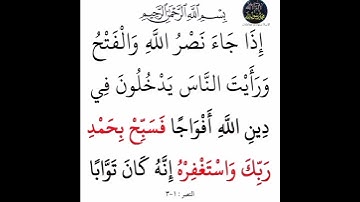 بِسْمِ اللَّهِ الرَّحْمَٰنِ الرَّحِيمِ
إِذَا جَاءَ نَصْرُ اللَّهِ وَالْفَتْحُ
وَرَأَيْتَ النَّاسَ يَدْخُلُونَ فِي
دِينِ اللَّهِ أَفْوَاجًا فَسَبِّحْ بِحَمْدِ
رَبِّكَ وَاسْتَغْفِرْهُ إِنَّهُ كَانَ تَوَّابًا
النصر : ١-٣